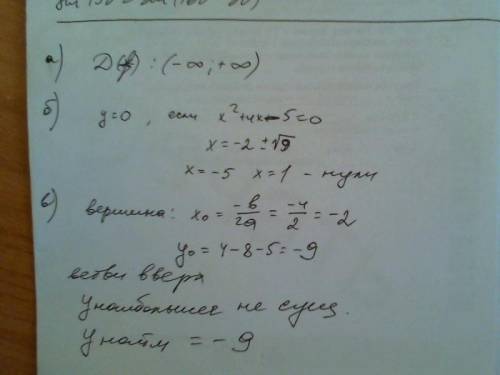 а) D(f) : (-∞; +∞)
б) y=0, если x²+4x-5=0
x=-2±√9
x=-5 x=1 - нули
в) вершина: x₀ = -b/2a = -4/2 = -2
y₀ = 4-8-5=-9
ветви вверх
y наибольшее не сущ.
y наим = -9